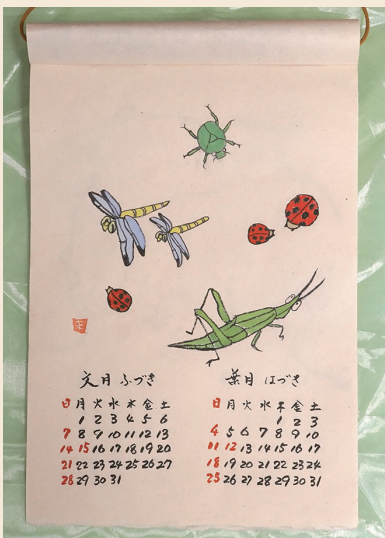 文月 ふづき
日 月 火 水 木 金 土
1 2 3 4 5 6
7 8 9 10 11 12 13
14 15 16 17 18 19 20
21 22 23 24 25 26 27
28 29 30 31
葉月 はづき
日 月 火 水 木 金 土
1 2 3
4 5 6 7 8 9 10
11 12 13 14 15 16 17
18 19 20 21 22 23 24
25 26 27 28 29 30 31